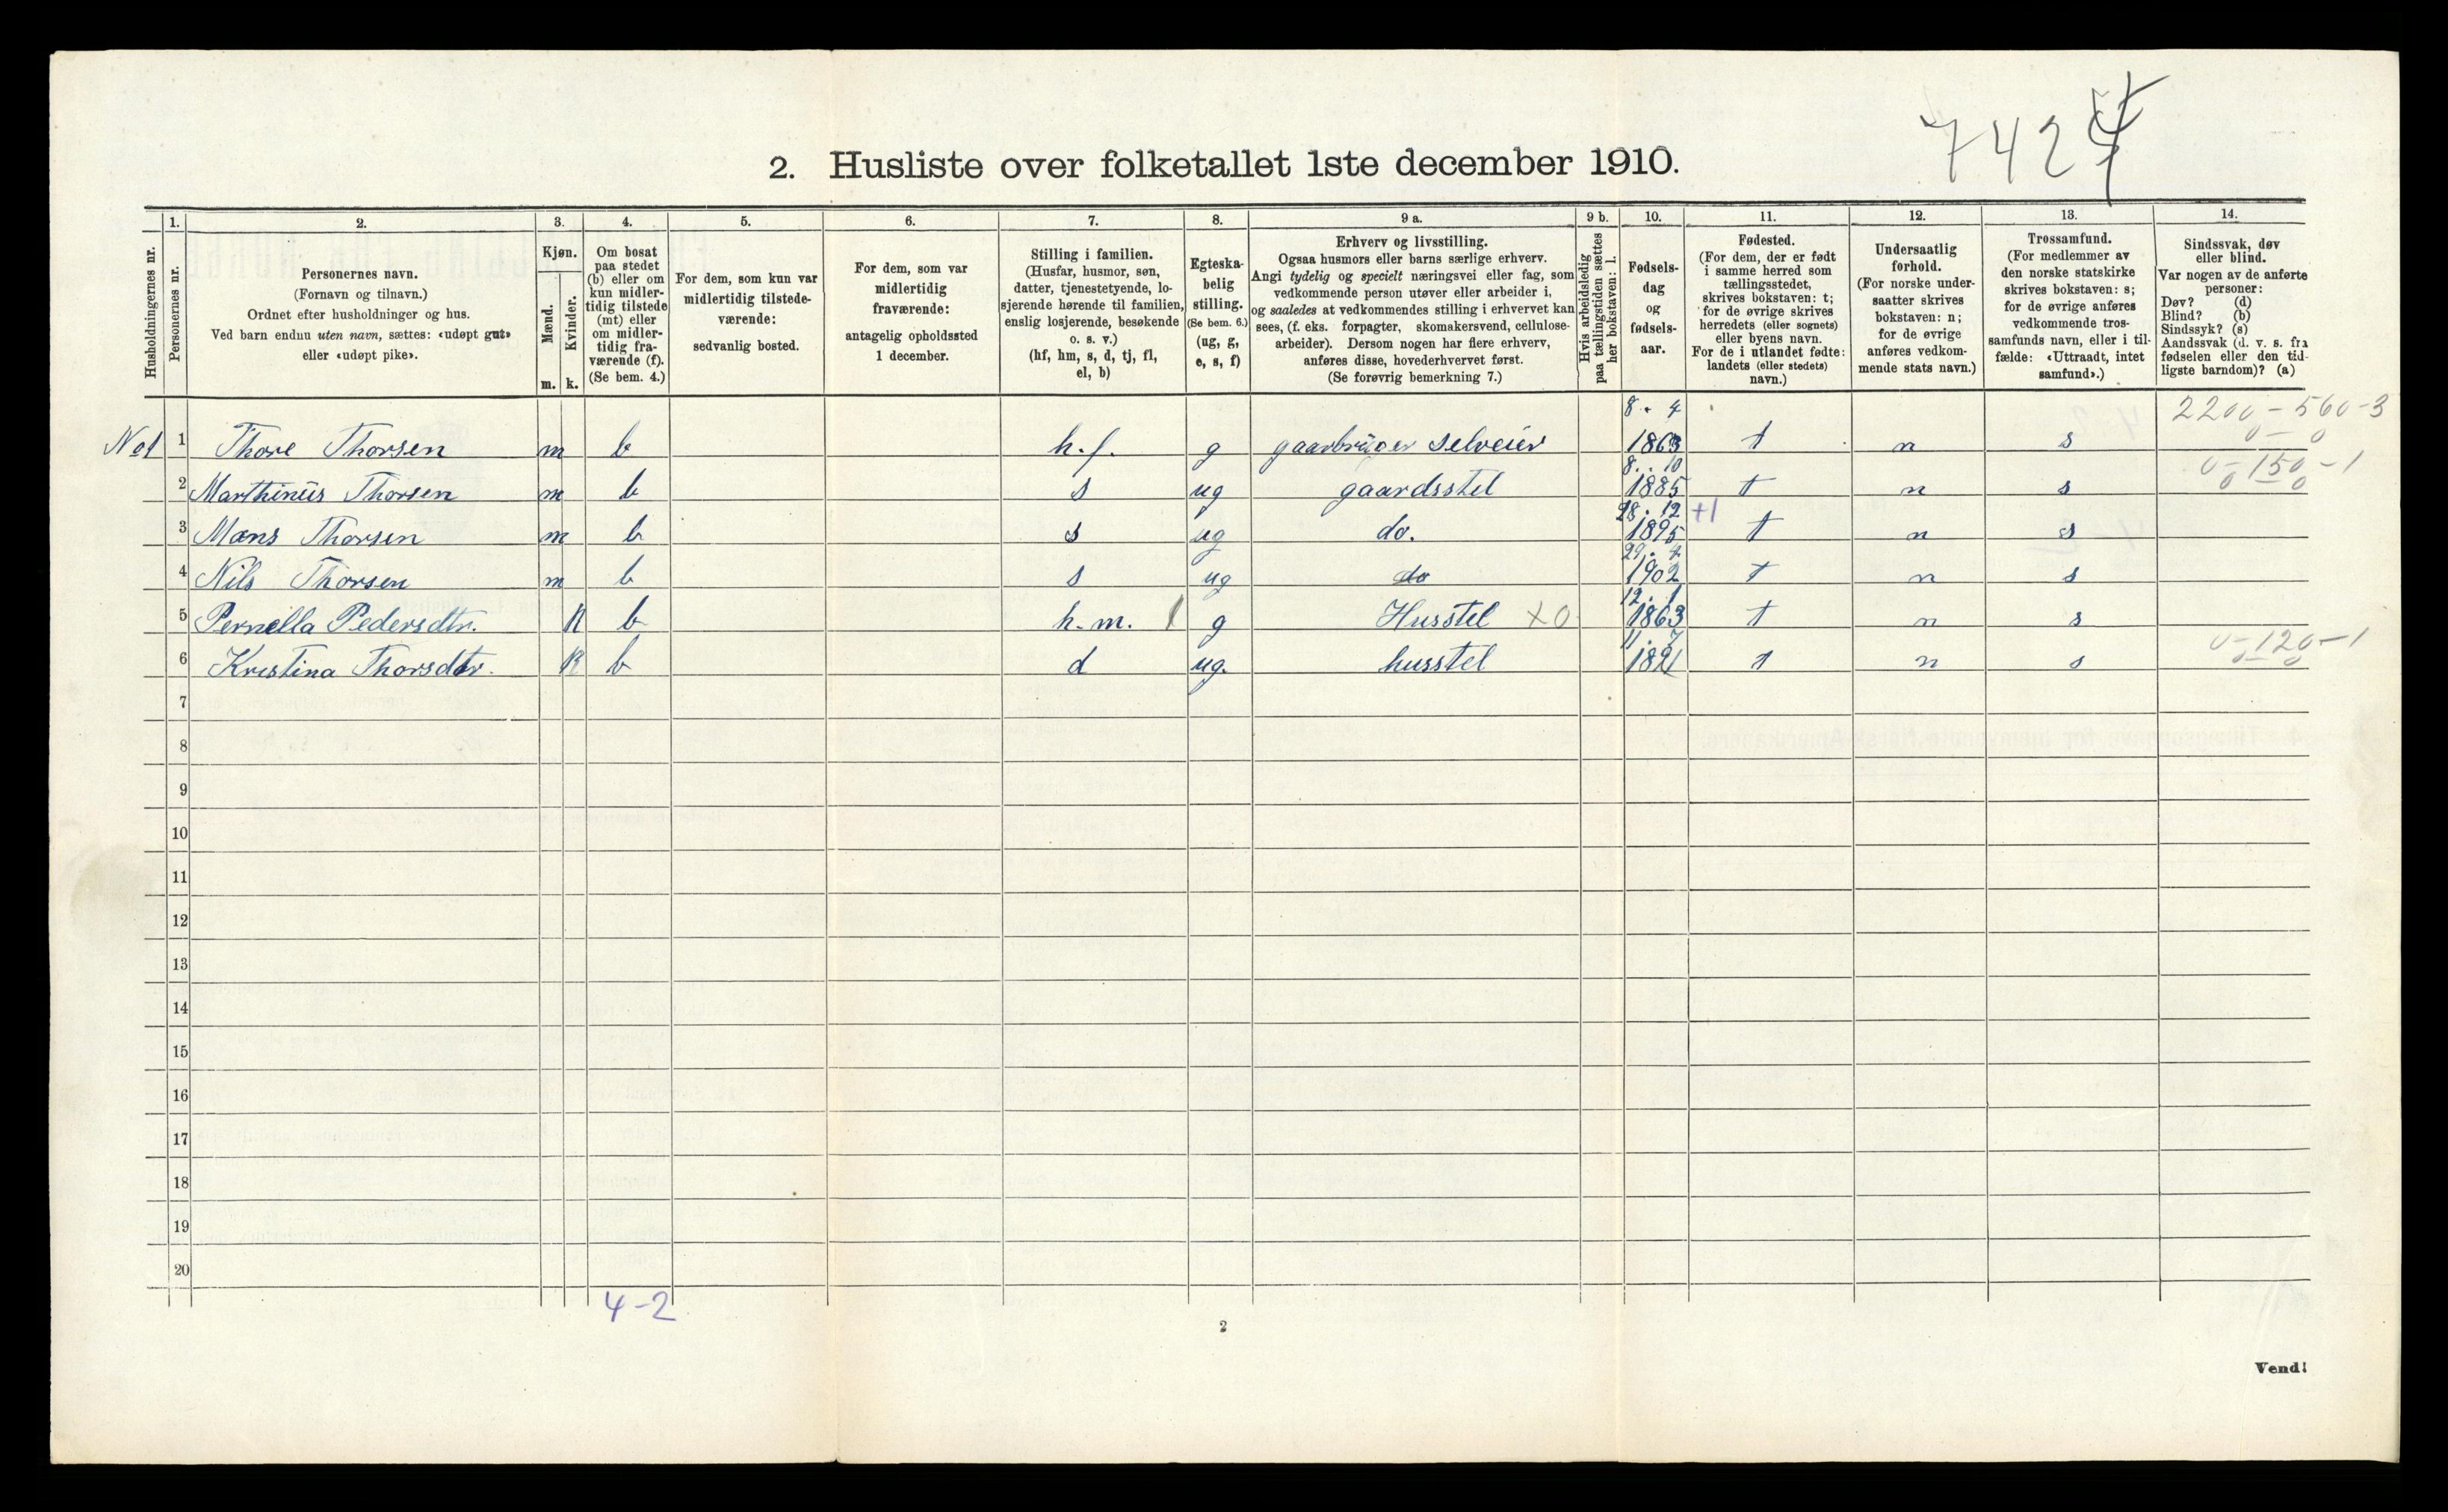 7424
2. Husliste over folketallet 1ste december 1910.
Husholdningernes nr.
1.
Personernes nr.
2.
Personernes navn.
(Fornavn og tilnavn.)
Ordnet efter husholdninger og hus.
Ved barn endnu uten navn, sættes: «udøpt gut»
eller «udøpt pike».
3.
Kjøn.
Mænd.
m.
Kvinder.
k.
4.
Om bosat
paa stedet
(b) eller om
kun midler-
tidig tilstede
(mt) eller
om midler-
tidig fra-
værende (f).
(Se bem. 4.)
5.
For dem, som kun var
midlertidig tilstede-
værende:
sedvanlig bosted.
6.
For dem, som var
midlertidig
fraværende:
antagelig opholdssted
1 december.
7.
Stilling i familien.
(Husfar, husmor, søn,
datter, tjenestetyende, lo-
sjerende hørende til familien,
enslig losjerende, besøkende
o. s. v.)
(hf, hm, s, d, tj, fl,
el, b)
8.
Egteska-
belig
stilling.
(Se bem. 6.)
(ug, g,
e, s, f)
9 a.
Erhverv og livsstilling.
Ogsaa husmors eller barns særlige erhverv.
Angi tydelig og specielt næringsvei eller fag, som
vedkommende person utøver eller arbeider i,
og saaledes at vedkommendes stilling i erhvervet kan
sees, (f. eks. forpagter, skomakersvend, cellulose-
arbeider). Dersom nogen har flere erhverv,
anføres disse, hovederhvervet først.
(Se forøvrig bemerkning 7.)
9 b.
Hvis arbeidsledig
paa tællingstiden sættes
her bokstaven: l.
10.
Fødsels-
dag
og
fødsels-
aar.
11.
Fødested.
(For dem, der er født
i samme herred som
tællingsstedet,
skrives bokstaven: t;
for de øvrige skrives
herredets (eller sognets)
eller byens navn.
For de i utlandet fødte:
landets (eller stedets)
navn.)
12.
Undersaatlig
forhold.
(For norske under-
saatter skrives
bokstaven: n;
for de øvrige
anføres vedkom-
mende stats navn.)
13.
Trossamfund.
(For medlemmer av
den norske statskirke
skrives bokstaven: s;
for de øvrige anføres
vedkommende tros-
samfunds navn, eller i til-
fælde: «Uttraadt, intet
samfund».)
14.
Sindssvak, døv
eller blind.
Var nogen av de anførte
personer:
Døv? (d)
Blind? (b)
Sindssyk? (s)
Aandssvak (d. v. s. fra
fødselen eller den tid-
ligste barndom)? (a)
No1 1 Thore Thorsen m b h.f. g gaarbrüger selveier 8. 4 1863 t n s 2200-560-3
2 Marthinüs Thorsen m b s ug gaardsstel 8. 10 1885 t n s 0-150-1
3 Mons Thorsen m b s ug do. 28. 12 1895 +1 t n s
4 Nils Thorsen m b s ug do 29. 4 1902 t n s
5 Pernella Pedersdtr. K b h.m. g Husstel X0 12. 1 1863 t n s
6 Kristina Thorsdtr. K b d ug. husstel 11. 7 1891 t n s 0-120-1
7
8
9
10
11
12
13
14
15
16
17
18
19
20
4-2
2
Vend!